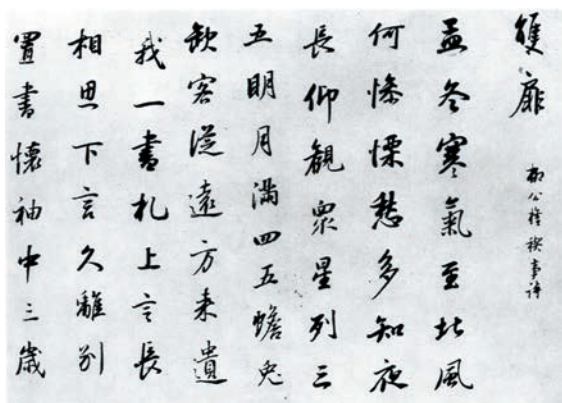 雙扉
柳公權禊事詩
孟冬寒氣至北風
何慘慄愁多知夜
長仰觀衆星列三
五明月滿四五蟾兔
缺客從遠方来遺
我一書札上言長
相思下言久離別
置書懷袖中三歲